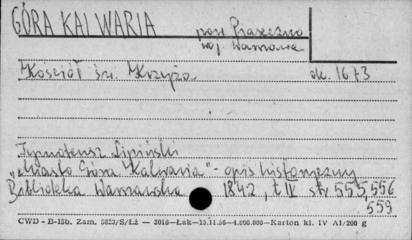 GÓRA KALWARIA pow. Piaseczno
woj. Warszawa
Kościół św. Krzyża ok. 1673
Tymoteusz Lipiński
"Miasto Góra Kalwaria" - opis historyczny
Biblioteka Warszawska 1842, t IV str 555, 556
559
CWD - B-15b. Zam. 5823/S/Łż — 3016—Łak—15.11.56—4.000.000—Karton kl. IV A1/200 g